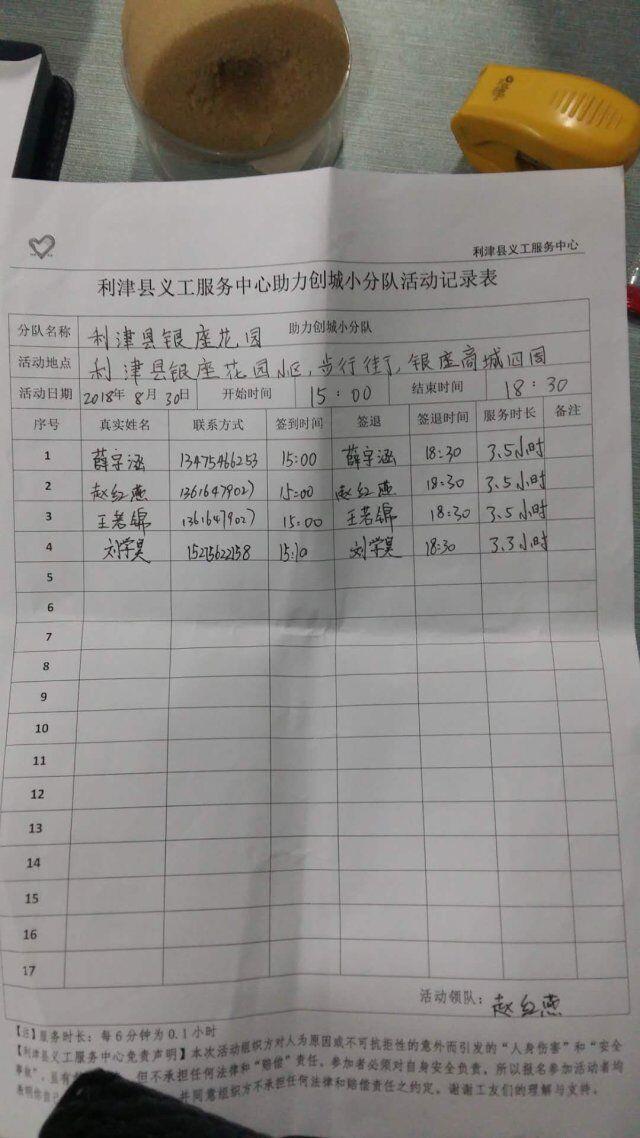 利津县义工服务中心
利津县义工服务中心助力创城小分队活动记录表
分队名称 利津县银座花园 助力创城小分队
活动地点 利津县银座花园小区,步行街,银座商城四周
活动日期 2018年8月30日 开始时间 15:00 结束时间 18:30
序号 真实姓名 联系方式 签到时间 签退 签退时间 服务时长 备注
1 薛宇涵 13475466253 15:00 薛宇涵 18:30 3.5小时
2 赵红燕 13616479027 15:00 赵红燕 18:30 3.5小时
3 王若锦 13616479027 15:00 王若锦 18:30 3.5小时
4 刘学昊 15:10 刘学昊 18:30 3.3小时
5
6
7
8
9
10
11
12
13
14
15
16
17
活动领队: 赵红燕
【注】服务时长:每6分钟为0.1小时
【利津县义工服务中心免责声明】本次活动组织方对人为原因或不可抗拒性的意外而引发的“人身伤害”和“安全
事故”,且有 但不承担任何法律和“赔偿”责任。参加者必须对自身安全负责,所以报名参加活动者均
表明你自己 并同意组织方不承担任何法律和赔偿责任之约定。谢谢工友们的理解与支持。